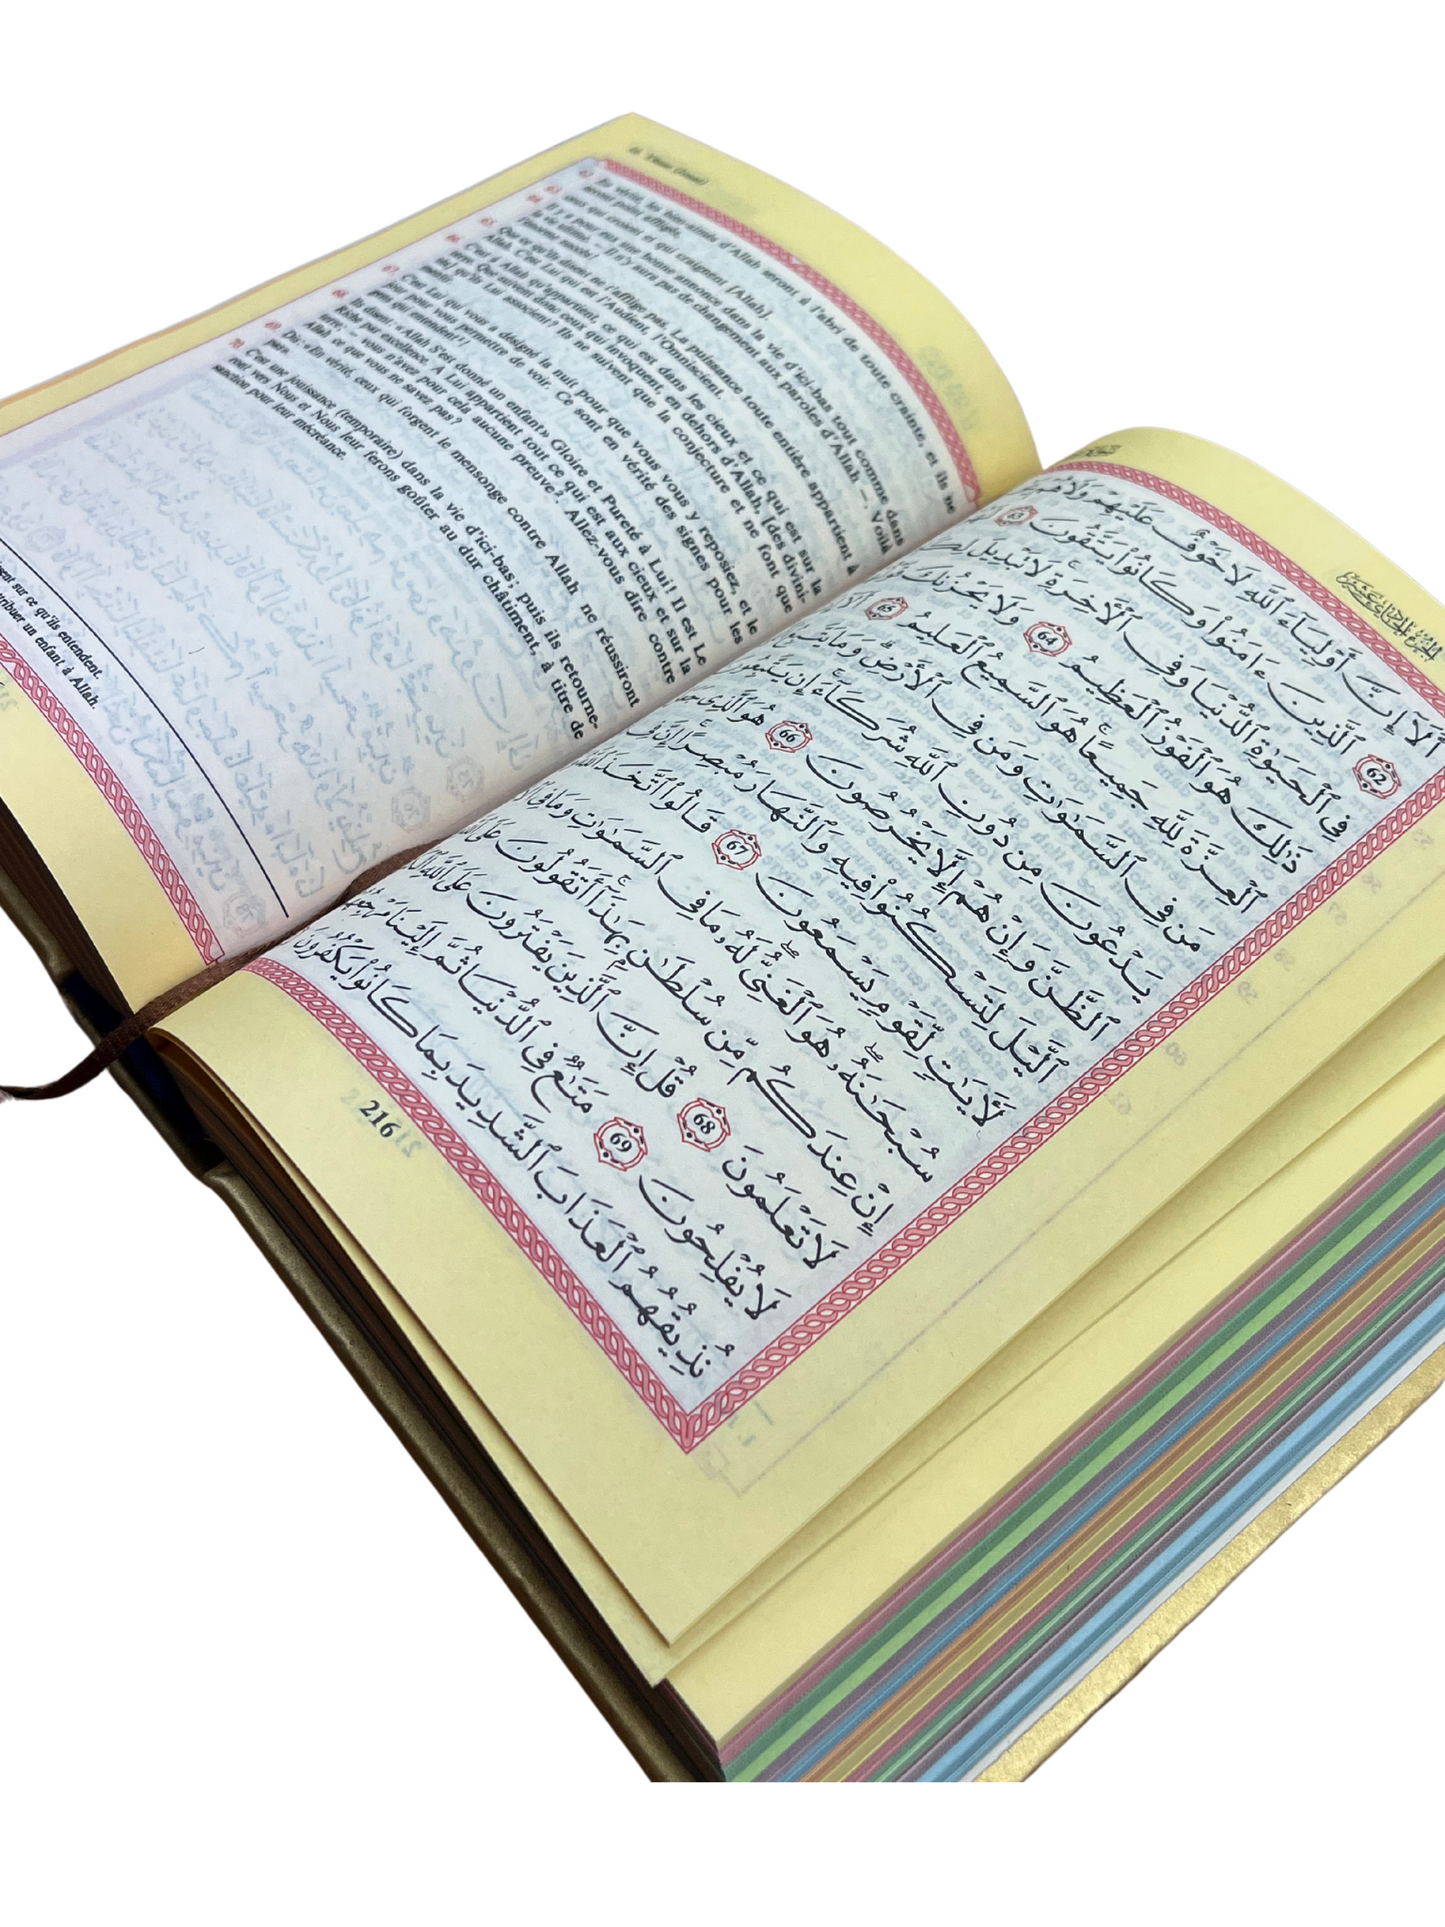 (Jonas)
62. En vérité, les bien-aimés d'Allah seront à l'abri de toute crainte, et ils ne
seront point affligés,
63. ceux qui croient et qui craignent [Allah].
64. Il y a pour eux une bonne annonce dans la vie d'ici-bas tout comme dans
la vie ultime. — Il n'y aura pas de changement aux paroles d'Allah —. Voilà
l'énorme succès!
65. Que ce qu'ils disent ne t'afflige pas. La puissance toute entière appartient à
Allah. C'est Lui qui est l'Audient, l'Omniscient.
66. C'est à Allah qu'appartient, ce qui est dans les cieux et ce qui est sur la
terre. Que suivent donc ceux qui invoquent, en dehors d'Allah, [des divini-
tés] qu'ils Lui associent? Ils ne suivent que la conjecture et ne font que
mentir.
67. C'est Lui qui vous a désigné la nuit pour que vous vous y reposiez, et le
jour pour vous permettre de voir. Ce sont en vérité des signes pour les
gens qui entendent!
68. Ils disent: «Allah S'est donné un enfant» Gloire et Pureté à Lui! Il est Le
Riche par excellence. A Lui appartient tout ce qui est aux cieux et sur la
terre; – vous n'avez pour cela aucune preuve. Allez-vous dire contre
Allah ce que vous ne savez pas?
69. Dis: «En vérité, ceux qui forgent le mensonge contre Allah ne réussiront
pas».
70. C'est une jouissance (temporaire) dans la vie d'ici-bas; puis ils retourne-
ront vers Nous et Nous leur ferons goûter au dur châtiment, à titre de
sanction pour leur mécréance.
sur ce qu'ils entendent.
un enfant à Allah.
أَلَآ إِنَّ أَوْلِيَآءَ ٱللَّهِ لَا خَوْفٌ عَلَيْهِمْ وَلَا
62 ٱلَّذِينَ ءَامَنُوا۟ وَكَانُوا۟ يَتَّقُونَ 63
فِى ٱلْحَيَوٰةِ ٱلدُّنْيَا وَفِى ٱلْـَٔاخِرَةِ لَا تَبْدِيلَ
ذَٰلِكَ هُوَ ٱلْفَوْزُ ٱلْعَظِيمُ 64 وَلَا يَحْزُنكَ
ٱلْعِزَّةَ لِلَّهِ جَمِيعًا هُوَ ٱلسَّمِيعُ ٱلْعَلِيمُ 65
مَن فِى ٱلسَّمَٰوَٰتِ وَمَن فِى ٱلْأَرْضِ وَمَا
يَدْعُونَ مِن دُونِ ٱللَّهِ شُرَكَآءَ إِن
ٱلظَّنَّ وَإِنْ هُمْ إِلَّا يَخْرُصُونَ 66 هُوَ ٱلَّذِى
ٱلَّيْلَ لِتَسْكُنُوا۟ فِيهِ وَٱلنَّهَارَ مُبْصِرًا إِنَّ فِى
لَـَٔايَٰتٍ لِّقَوْمٍ يَسْمَعُونَ 67 قَالُوا۟ ٱتَّخَذَ
سُبْحَٰنَهُۥ هُوَ ٱلْغَنِىُّ لَهُۥ مَا فِى ٱلسَّمَٰوَٰتِ وَمَا فِى
إِنْ عِندَكُم مِّن سُلْطَٰنٍۭ بِهَٰذَآ أَتَقُولُونَ عَلَى
لَا تَعْلَمُونَ 68 قُلْ إِنَّ ٱلَّذِينَ يَفْتَرُونَ عَلَى ٱللَّهِ
لَا يُفْلِحُونَ 69 مَتَٰعٌ فِى ٱلدُّنْيَا ثُمَّ إِلَيْنَا
نُذِيقُهُمُ ٱلْعَذَابَ ٱلشَّدِيدَ بِمَا كَانُوا۟ يَكْفُرُونَ
216